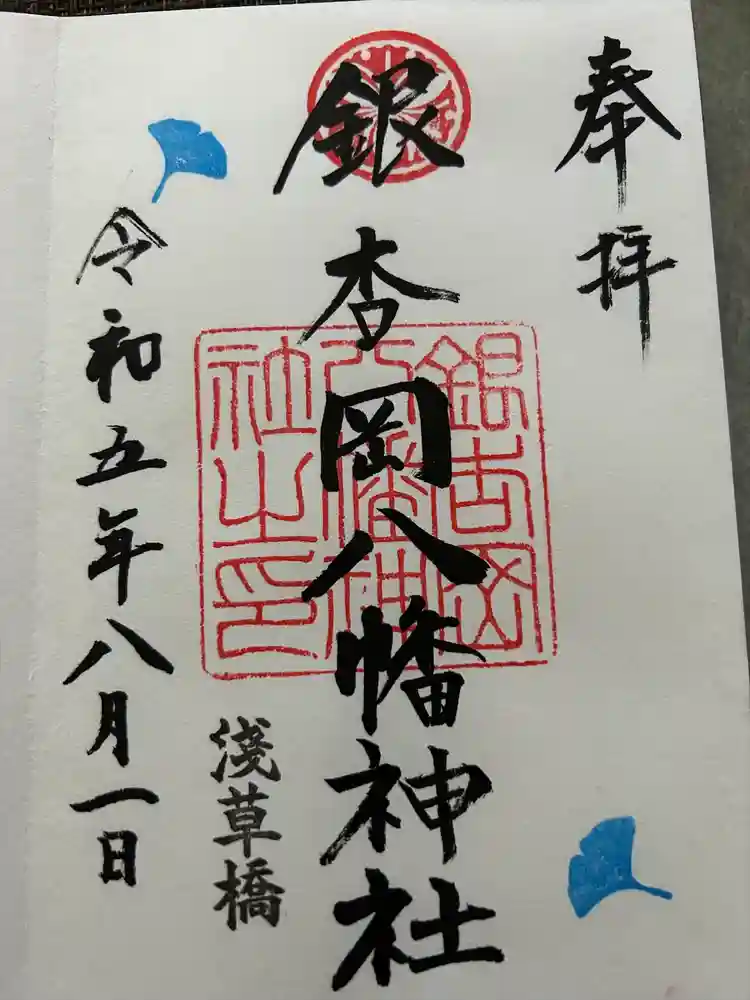 奉拝
銀杏岡八幡神社
銀杏岡八幡神社之印
淺草橋
令和五年八月一日